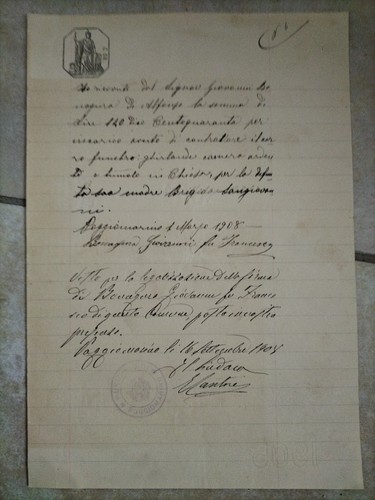 Ho ricevuto dal Signor Giovanni Bo
nagura di Alfonso la somma di
Lire 140 dico Centoquaranta per
incarico avuto di contrattare il car
ro funebre ghirlande camera arden
te e tumulo in Chiesa, per la defun
ta sua madre Brigida Sangiovan
ni.
Poggiomarino 1 Marzo 1908
Bonagura Giovanni fu Francesco
Visto per la legalizzazione della firma
di Bonagura Giovanni fu France
sco di questo Comune, posta in nostra
presenza.
Poggiomarino li 16 Settembre 1908
Il Sindaco